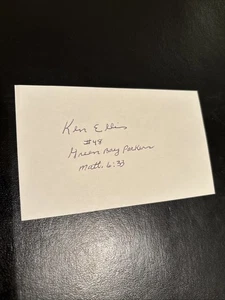 Ken Ellis
#48
Green Bay Packers
Matt. 6:33